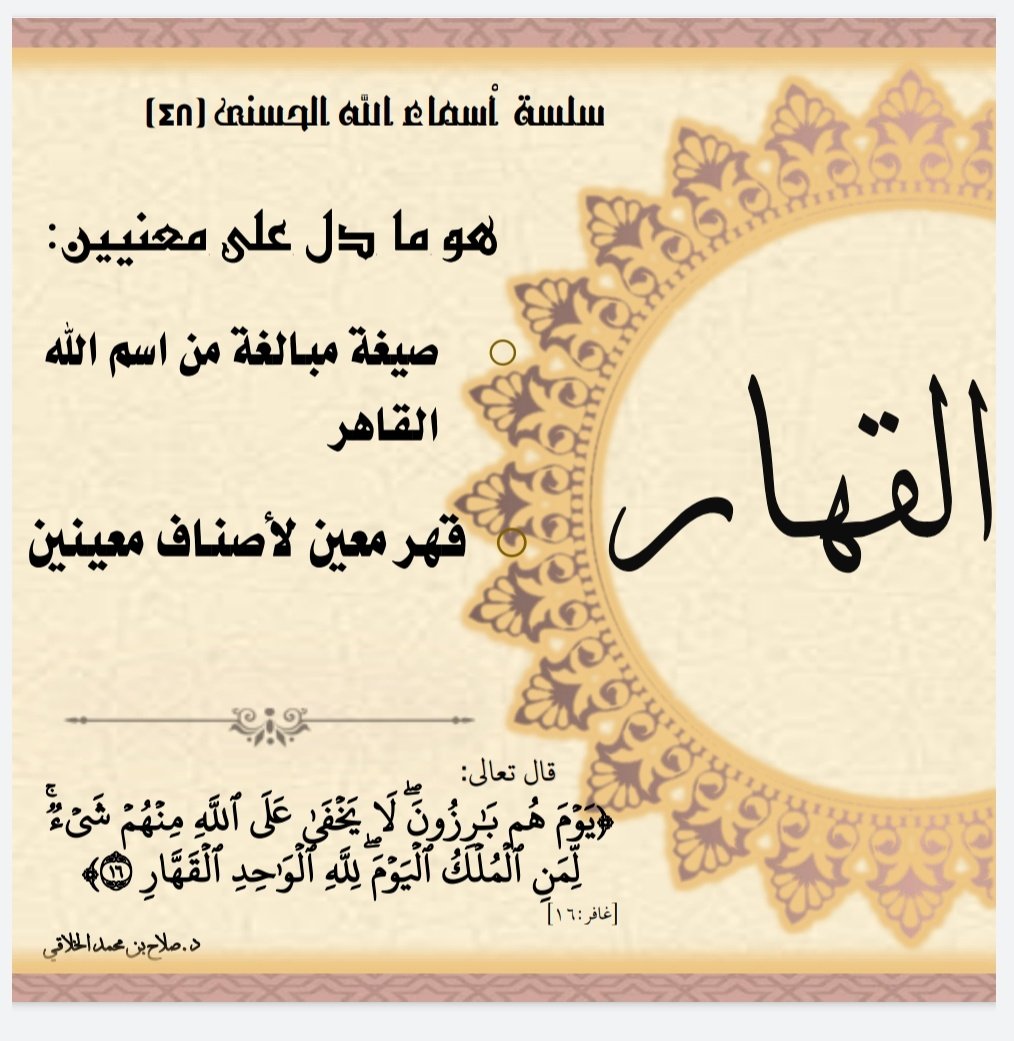 سلسة أسماء الله الحسنى (٤٨)
هو ما دل على معنيين:
صيغة مبالغة من اسم الله
القاهر
قهر معين لأصناف معينين
القهار
قال تعالى:
﴿يَوْمَ هُم بَـٰرِزُونَۖ لَا يَخْفَىٰ عَلَى ٱللَّهِ مِنْهُمْ شَىْءٌۚ
لِّمَنِ ٱلْمُلْكُ ٱلْيَوْمَۖ لِلَّهِ ٱلْوَٰحِدِ ٱلْقَهَّارِ ١٦﴾
[غافر:١٦]
د.صلاح بن محمد الخلاقي